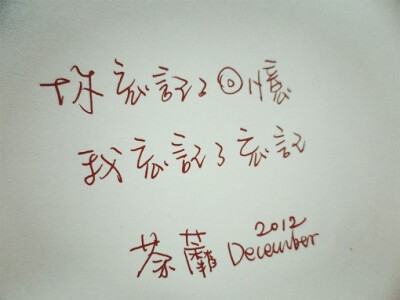 妳忘記了回憶
我忘記了忘記
2012
December